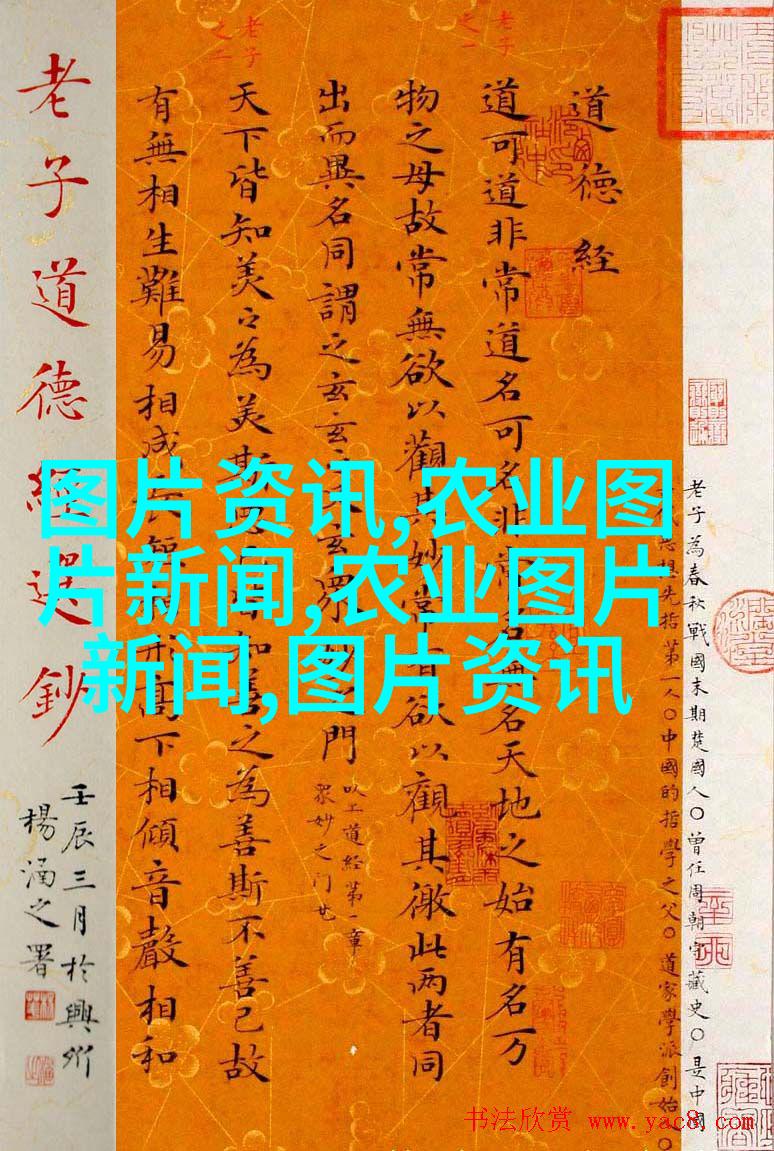 老子為春秋戰國末期楚國人〇曾任周朝守藏史〇是中國
代思想先指第一人〇中國的哲學之父〇道家學派創始〇
道德经
老子
之一
道可道非常道名可名非常名無名天地之始有名万
物之母故常無欲以觀其妙常有欲以觀其徼此两者同
出而異名同謂之玄玄之又玄眾妙之門
以上道经第一章
眾妙之门
老子
之二
天下皆知美之為美斯恶已皆知善之為善斯不善已故
有無相生難易相成长短相形高下相傾音聲相和
老子道德經選鈔
壬辰三月於興
楊涵之署
图片资讯,农业图
片新闻,农业图片
新闻,图片资讯
书法欣赏 www.yac8.com